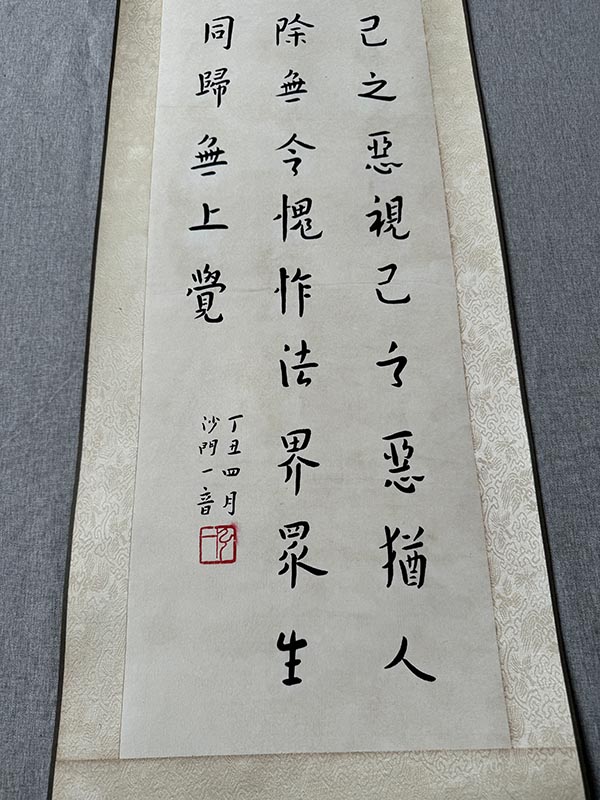 己之惡視己之惡猶人
除無令愧怍法界眾生
同歸無上覺
丁丑四月
沙門一音
弘一